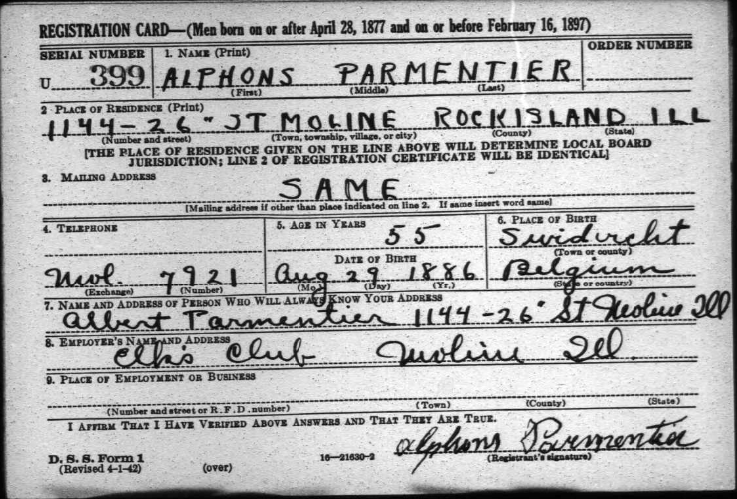 REGISTRATION CARD—(Men born on or after April 28, 1877 and on or before February 16, 1897)
SERIAL NUMBER 1. NAME (Print) ORDER NUMBER
U 399 ALPHONS PARMENTIER
(First) (Middle) (Last)
2 PLACE OF RESIDENCE (Print)
1144-26" ST MOLINE ROCKISLAND ILL
(Number and street) (Town, township, village, or city) (County) (State)
[THE PLACE OF RESIDENCE GIVEN ON THE LINE ABOVE WILL DETERMINE LOCAL BOARD
JURISDICTION; LINE 2 OF REGISTRATION CERTIFICATE WILL BE IDENTICAL]
3. MAILING ADDRESS
SAME
[Mailing address if other than place indicated on line 2. If same insert word same]
4. TELEPHONE 5. AGE IN YEARS 6. PLACE OF BIRTH
55 Swidvcht
(Town or county)
DATE OF BIRTH
Mol. 7921 Aug 29 1886 Belgium
(Exchange) (Number) (Mo.) (Day) (Yr.) (State or country)
7. NAME AND ADDRESS OF PERSON WHO WILL ALWAYS KNOW YOUR ADDRESS
Albert Parmentier 1144-26" St Moline Ill
8. EMPLOYER'S NAME AND ADDRESS
Elks Club Moline Ill.
9. PLACE OF EMPLOYMENT OR BUSINESS
(Number and street or R. F. D. number) (Town) (County) (State)
I AFFIRM THAT I HAVE VERIFIED ABOVE ANSWERS AND THAT THEY ARE TRUE.
Alphons Parmentier
D. S. S. Form 1 16—21630-2 (Registrant's signature)
(Revised 4-1-42) (over)